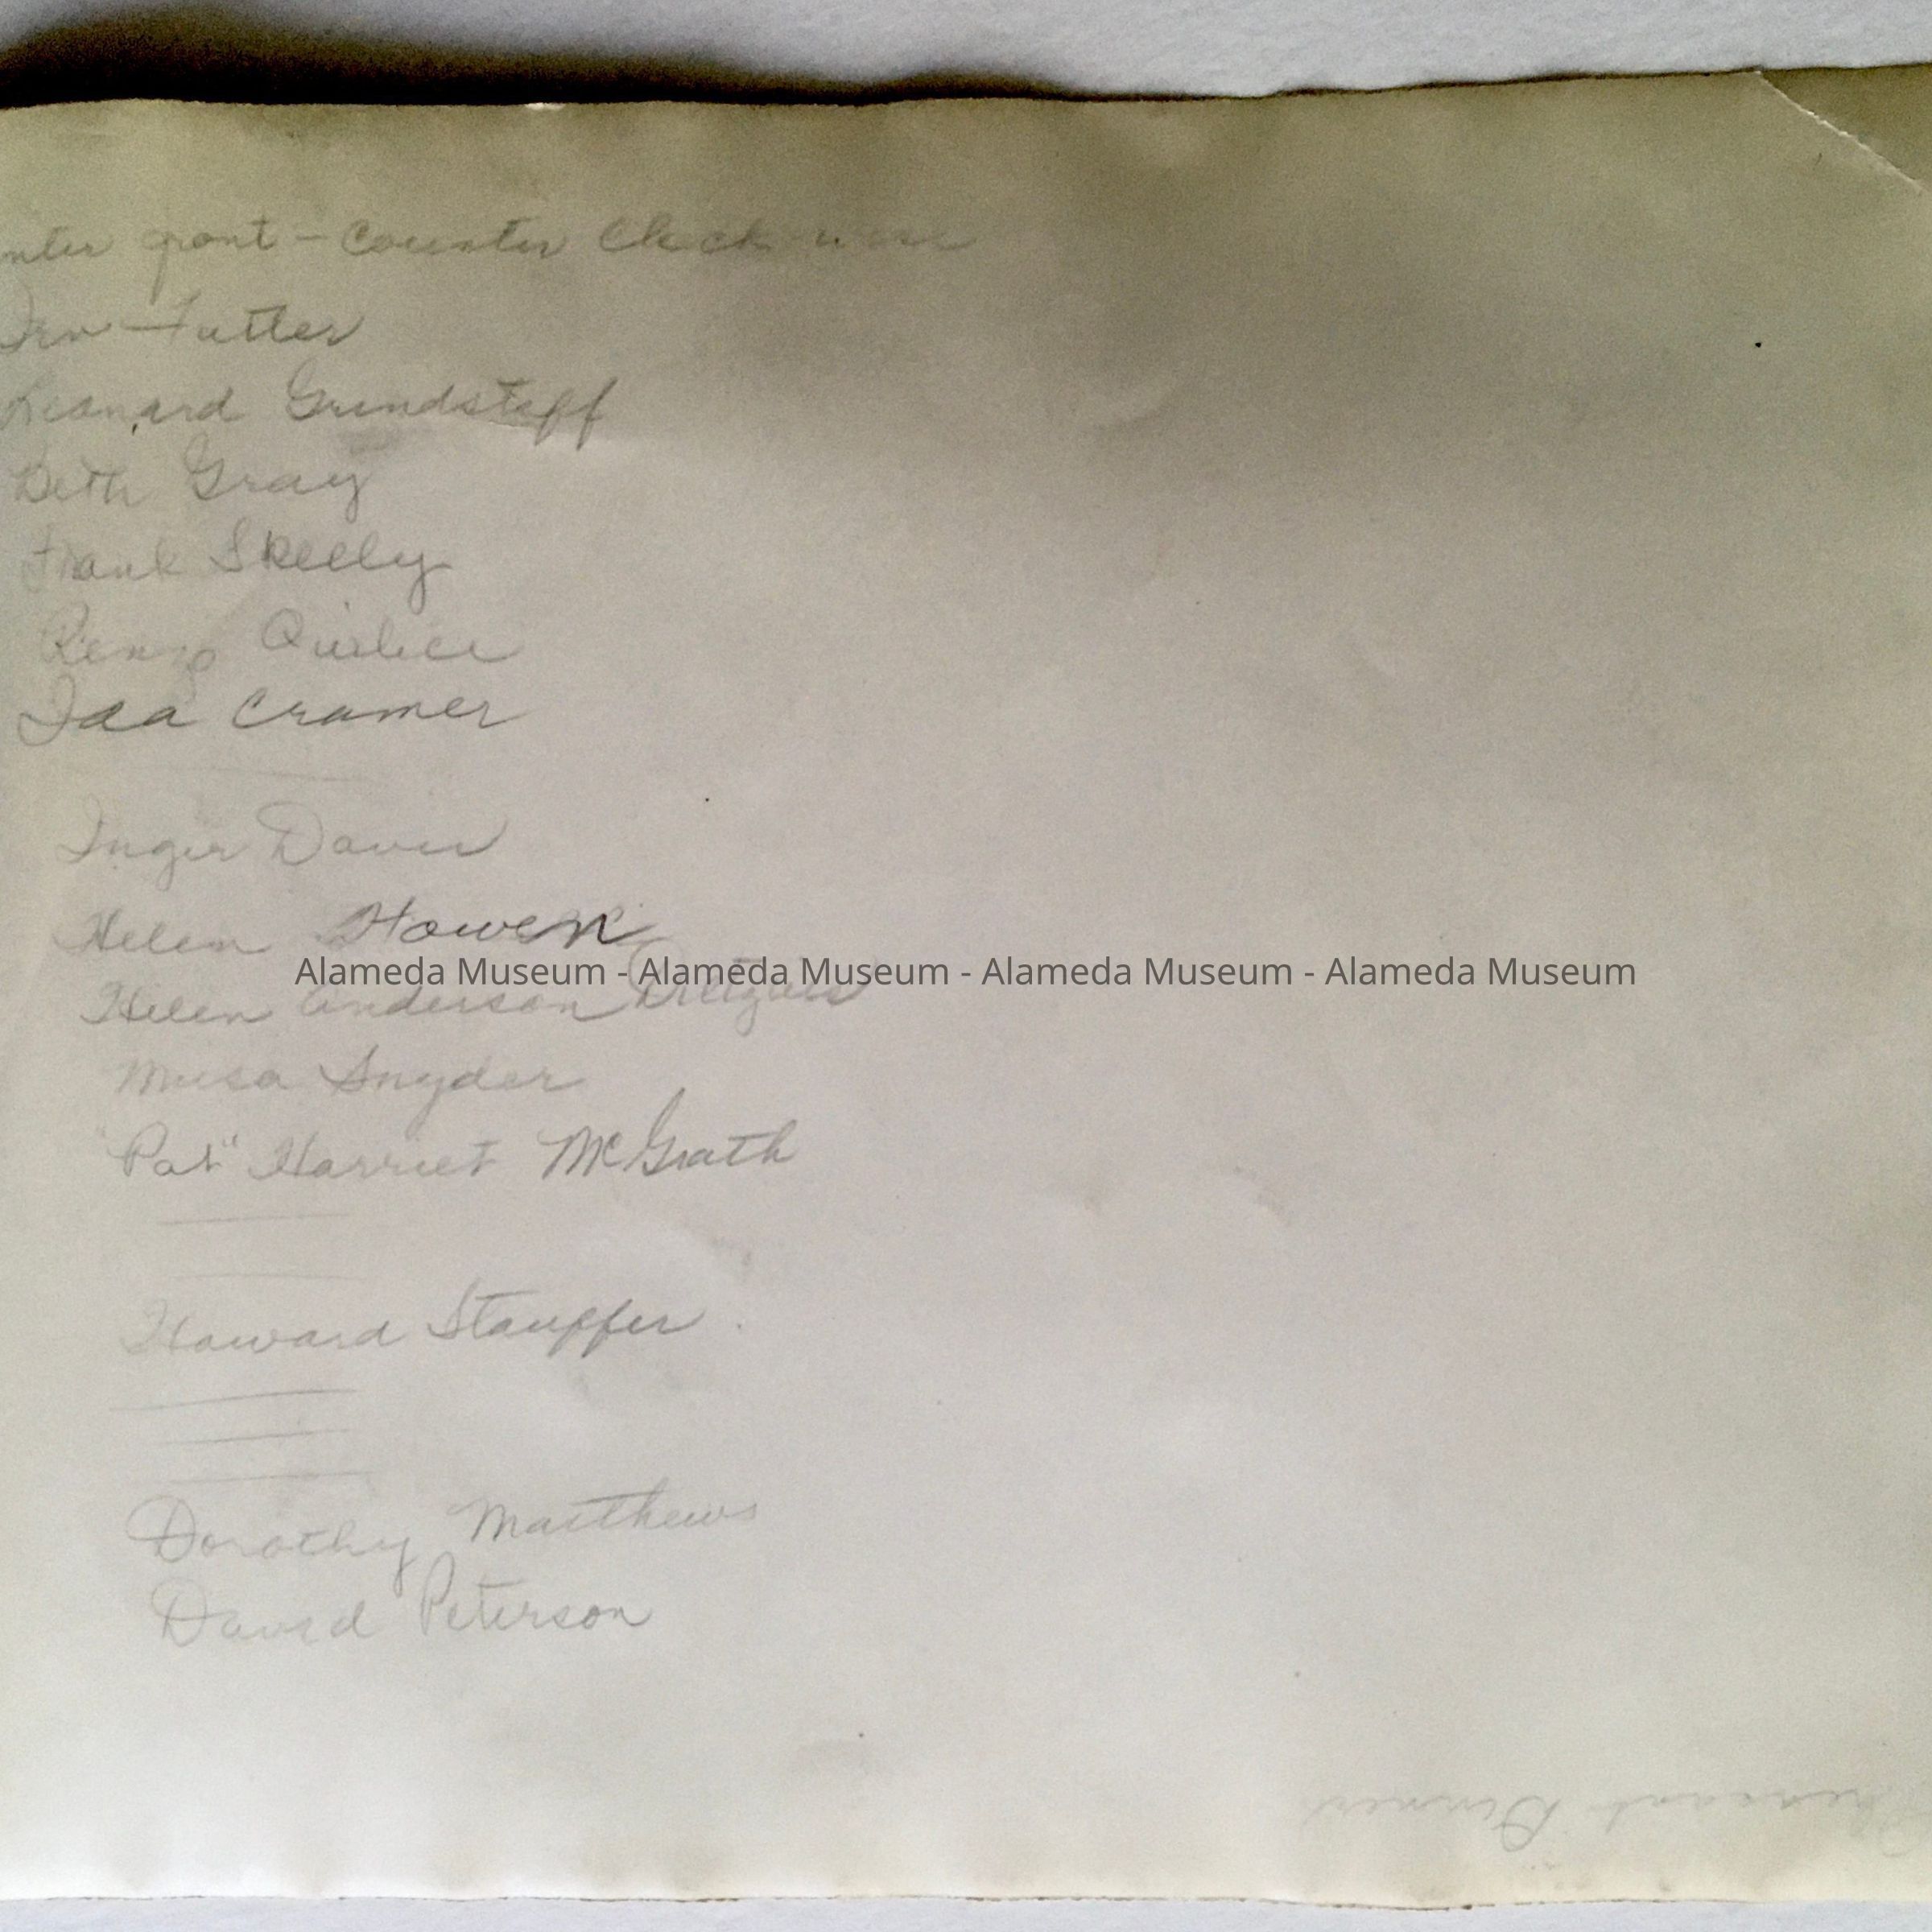 nter front - Counter Clock wise
Irv Tutter
Leonard Grindstaff
Beth Gray
Frank Skelly
Renzo
Ida Cramer
Inger Davis
Helen Howen
Alameda Museum - Alameda Museum - Alameda Museum - Alameda Museum
Helen Anderson
Musa Snyder
"Pat" Harriet McGrath
Howard Stauffer
Dorothy Matthews
David Peterson
Pheasant Dinner